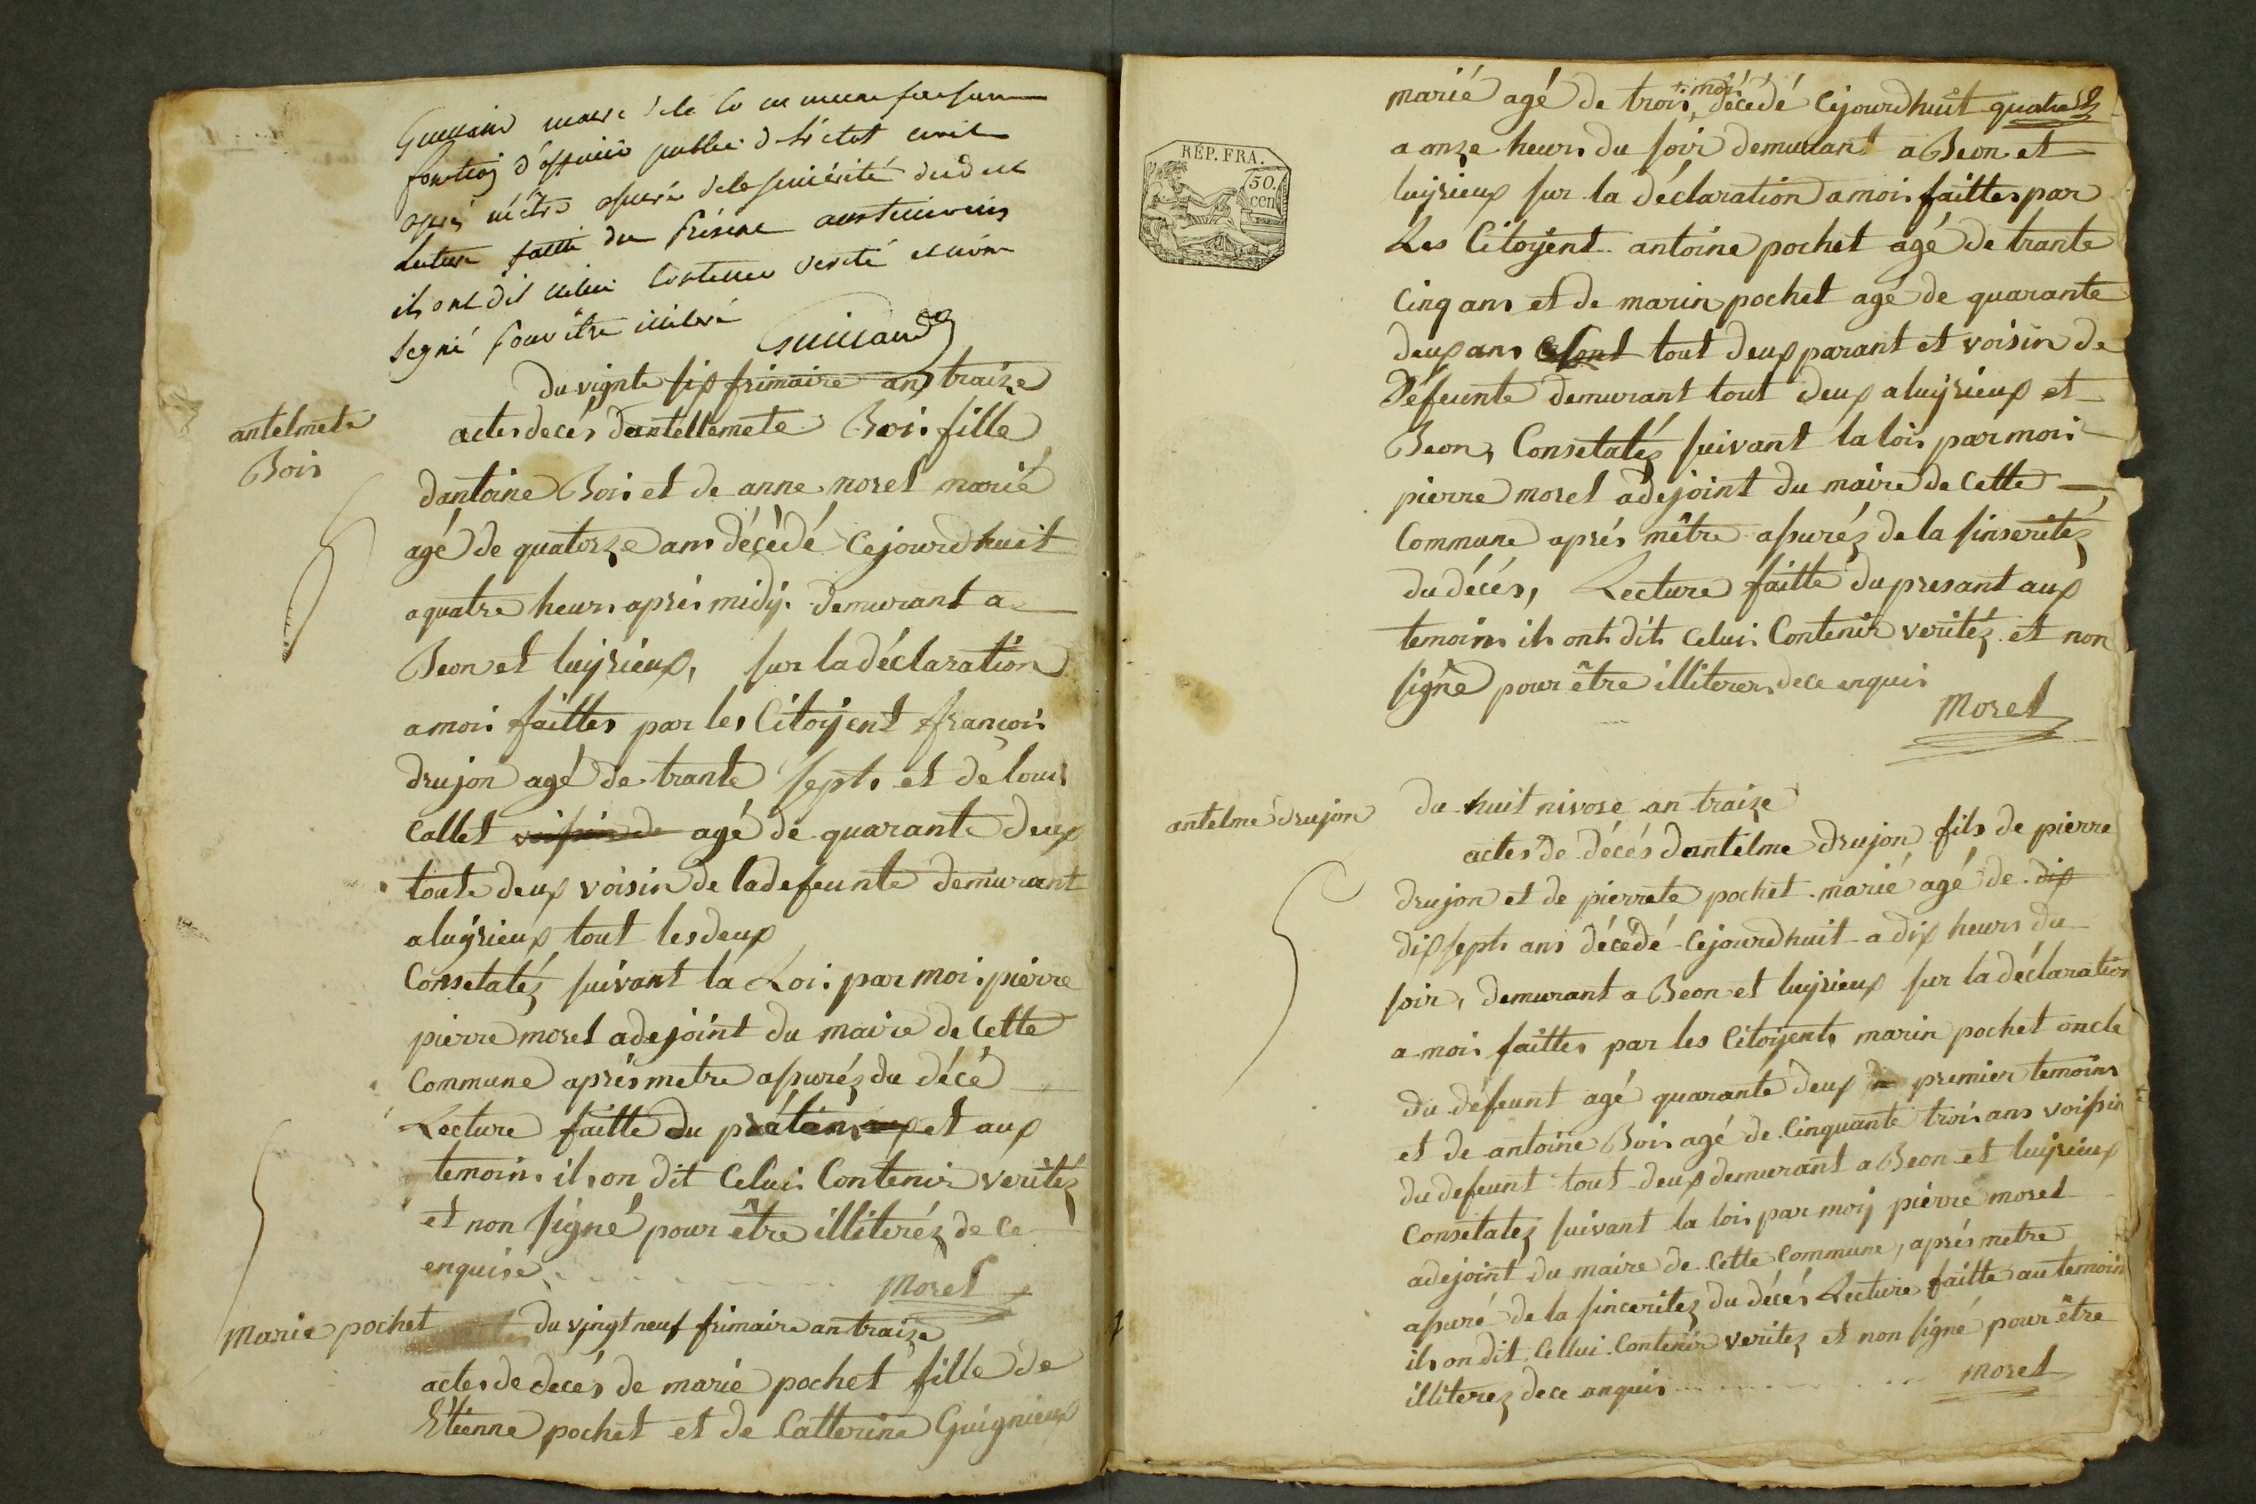 Guilland maire de la commune faisant
fonction d'officier public de l'état civil
après m'être assuré de la sincérité du deces
lecture faitte du présent aux temoins
ils ont dit celui contenir verité et non
signé pour être illiteré
Guilland
du vignte six frimaire an traize
antelmete
Bois
actes decés dantellemete Bois fille
dantoine Bois et de anne morel marié
agé de quatorze ans décédé cejourdhuit
a quatre heurs aprés midÿ demurant a
Beon et luÿrieux, sur la déclaration
a mois faittes par les Citoÿent françois
drujon agé de trante septs et de louis
Callet voisin de agé de quarante deux
toute deux voisin de ladefeunte demurant
a luÿrieux tout les deux
Consetatéz suivant la Loi par moi pierre
pierre morel adejoint du maire de Cette
Commune aprés metre assuréz du décé
Lecture faitte du et aux
temoins ils on dit Celui Contenir veritéz
et non signé pour être illiteréz de ce
enquise
Morel
Marie pochet
du vingt neuf frimaire an traize
actes de decés de marie pochet fille de
Etienne pochet et de Catterine Guignieux
RÉP. FRA.
50.
cen
marié agé de trois mois décédé cejourdhuit quatre
a onze heurs du soir demurant a Beon et
luÿrieux sur la déclaration a mois faittes par
Les Citoÿent antoine pochet agé de trante
Cinq ans et de marin pochet agé de quarante
deux ans Cesont tout deux parant et voisin de
Défeunte demurant tout deux a luÿrieux et
Beon, Consetatéz suivant la lois par mois
pierre morel adejoint du maire de Cette
Commune aprés mêtre assuréz de la sinseritéz
du décés, Lecture faitte du presant aux
temoins ils ont dits Celui Contenir veritéz et non
signé pour être illiterers de ce enquis
Morel
antelme drujon
du huit nivose an traize
actes de décés dantelme drujon fils de pierre
drujon et de pierrete pochet marié agé de dix
dix septs ans décédé cejourdhuit a dix heurs du
soir, demurant a Beon et luÿrieux sur la déclaration
a mois faittes par les Citoÿents marin pochet oncle
du défeunt agé quarante deux premier temoins
et de antoine Bois agé de Cinquante trois ans voissin
du defeunt tout deux demurant a Beon et luÿrieux
Consetatéz suivant la lois par moÿ pierre morel
adejoint du maire de Cette Commune, aprés metre
assuré de la sinceritez du décés Lecture faitte au temoin
ils on dit Cellui Contenir veritez et non signé pour être
illiterez de ce enquis
Morel